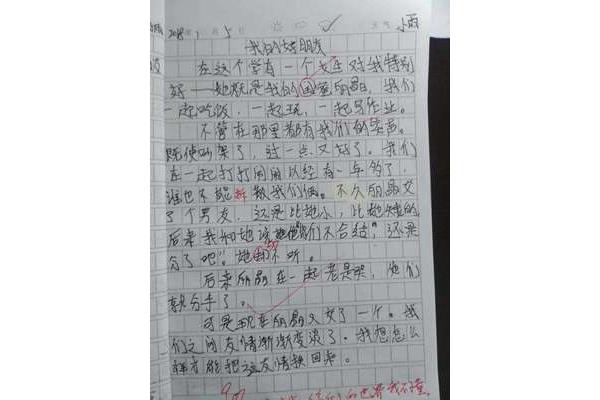 2018 1 5 小雨
我的好朋友
在这个学有一个女生对我特别
好——她就是我的闺蜜丽晶，我们
一起吃饭，一起玩，一起写作业。
不管在那里都有我们的笑声。
既使吵架了，过一点又好了。我们
在一起打打闹闹以经有一年多了，
谁也不能拆散我们俩。不久丽晶交
了个男友，还是比她小，比她矮的，
后来我和她说她们不合结，还是
分了吧。她却不听。
后来丽晶在一起老是哭，他们
就分手了。
可是现在丽晶又交了一个。我
们之间友情渐渐变淡了。我想怎么
样才能把这友情换回来。
的世界我不懂